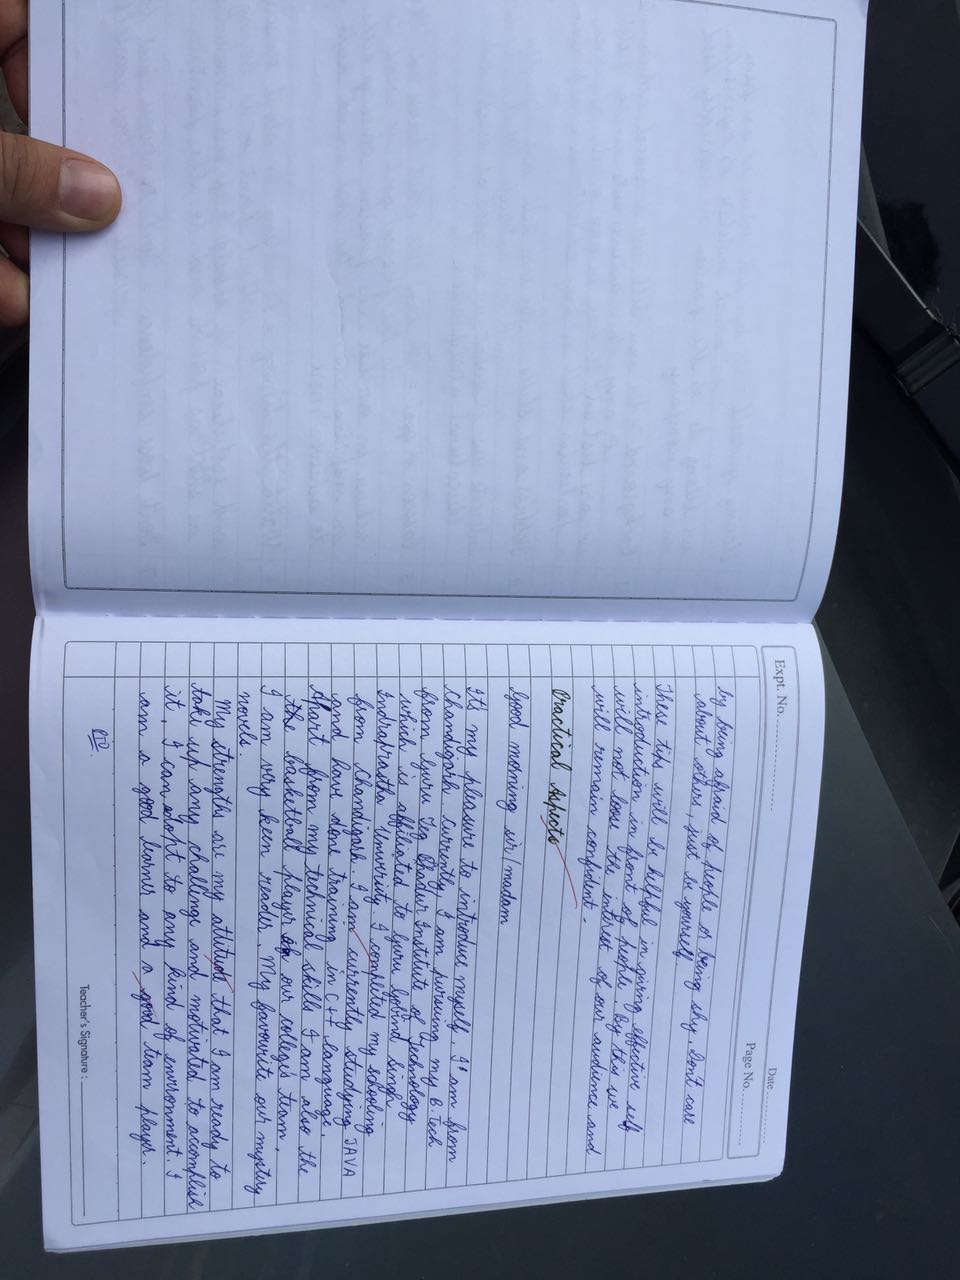 Expt. No.
Date
Page No.
by being afraid of people or being shy. Don't care
about others, just be yourself.
These tips will be helpful in giving effective self
introduction in front of people. By this we
will not loose the interest of our audience and
will remain confident.
Practical Aspects
Good morning sir/madam
It's my pleasure to introduce myself. I am from
Chandigarh. Currently, I am pursuing my B.Tech
from Guru Teg Bhadur Institute of Technology
which is affiliated to Guru Gobind Singh
Indraprastha University. I completed my schooling
from Chandigarh. I am currently studying JAVA
and have done training in C++ language.
Apart from my technical skills I am also the
the basketball player of our college's team.
I am very keen reader. My favourite our mystery
novels.
My strengths are my attitude that I am ready to
take up any challenge and motivated to accomplish
it. I can adopt to any kind of environment. I
am a good learner and a good team player.
PTO
Teacher's Signature :